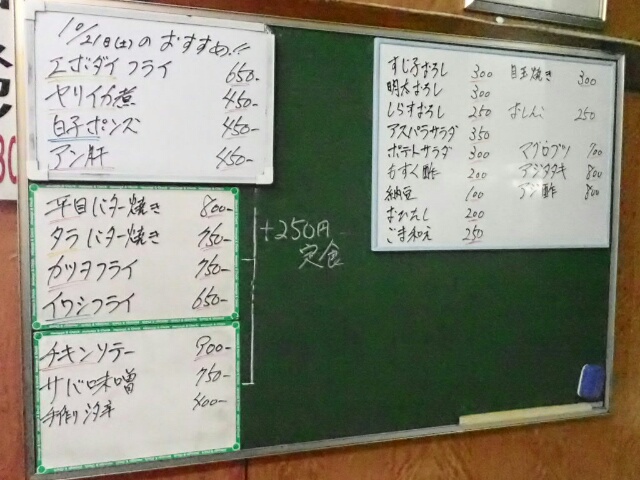 10/21日(土)のおすすめ!!
エボダイフライ 650-
ヤリイカ煮 450-
白子ポンズ 450-
アン肝 450-
平目バター焼き 800-
タラバター焼き 750-
カツオフライ 750-
イワシフライ 650-
+250円
定食
チキンソテー 900-
サバ味噌 750-
手作りシタ辛 400-
すじ子おろし 300 目玉焼き 300
明太おろし 300
しらすおろし 250 おしんこ 250
アスパラサラダ 350
ポテトサラダ 300 マグロブツ 700
もずく酢 200 アジタタキ 800
納豆 100 アジ酢 800
おひたし 200
ごま和え 250